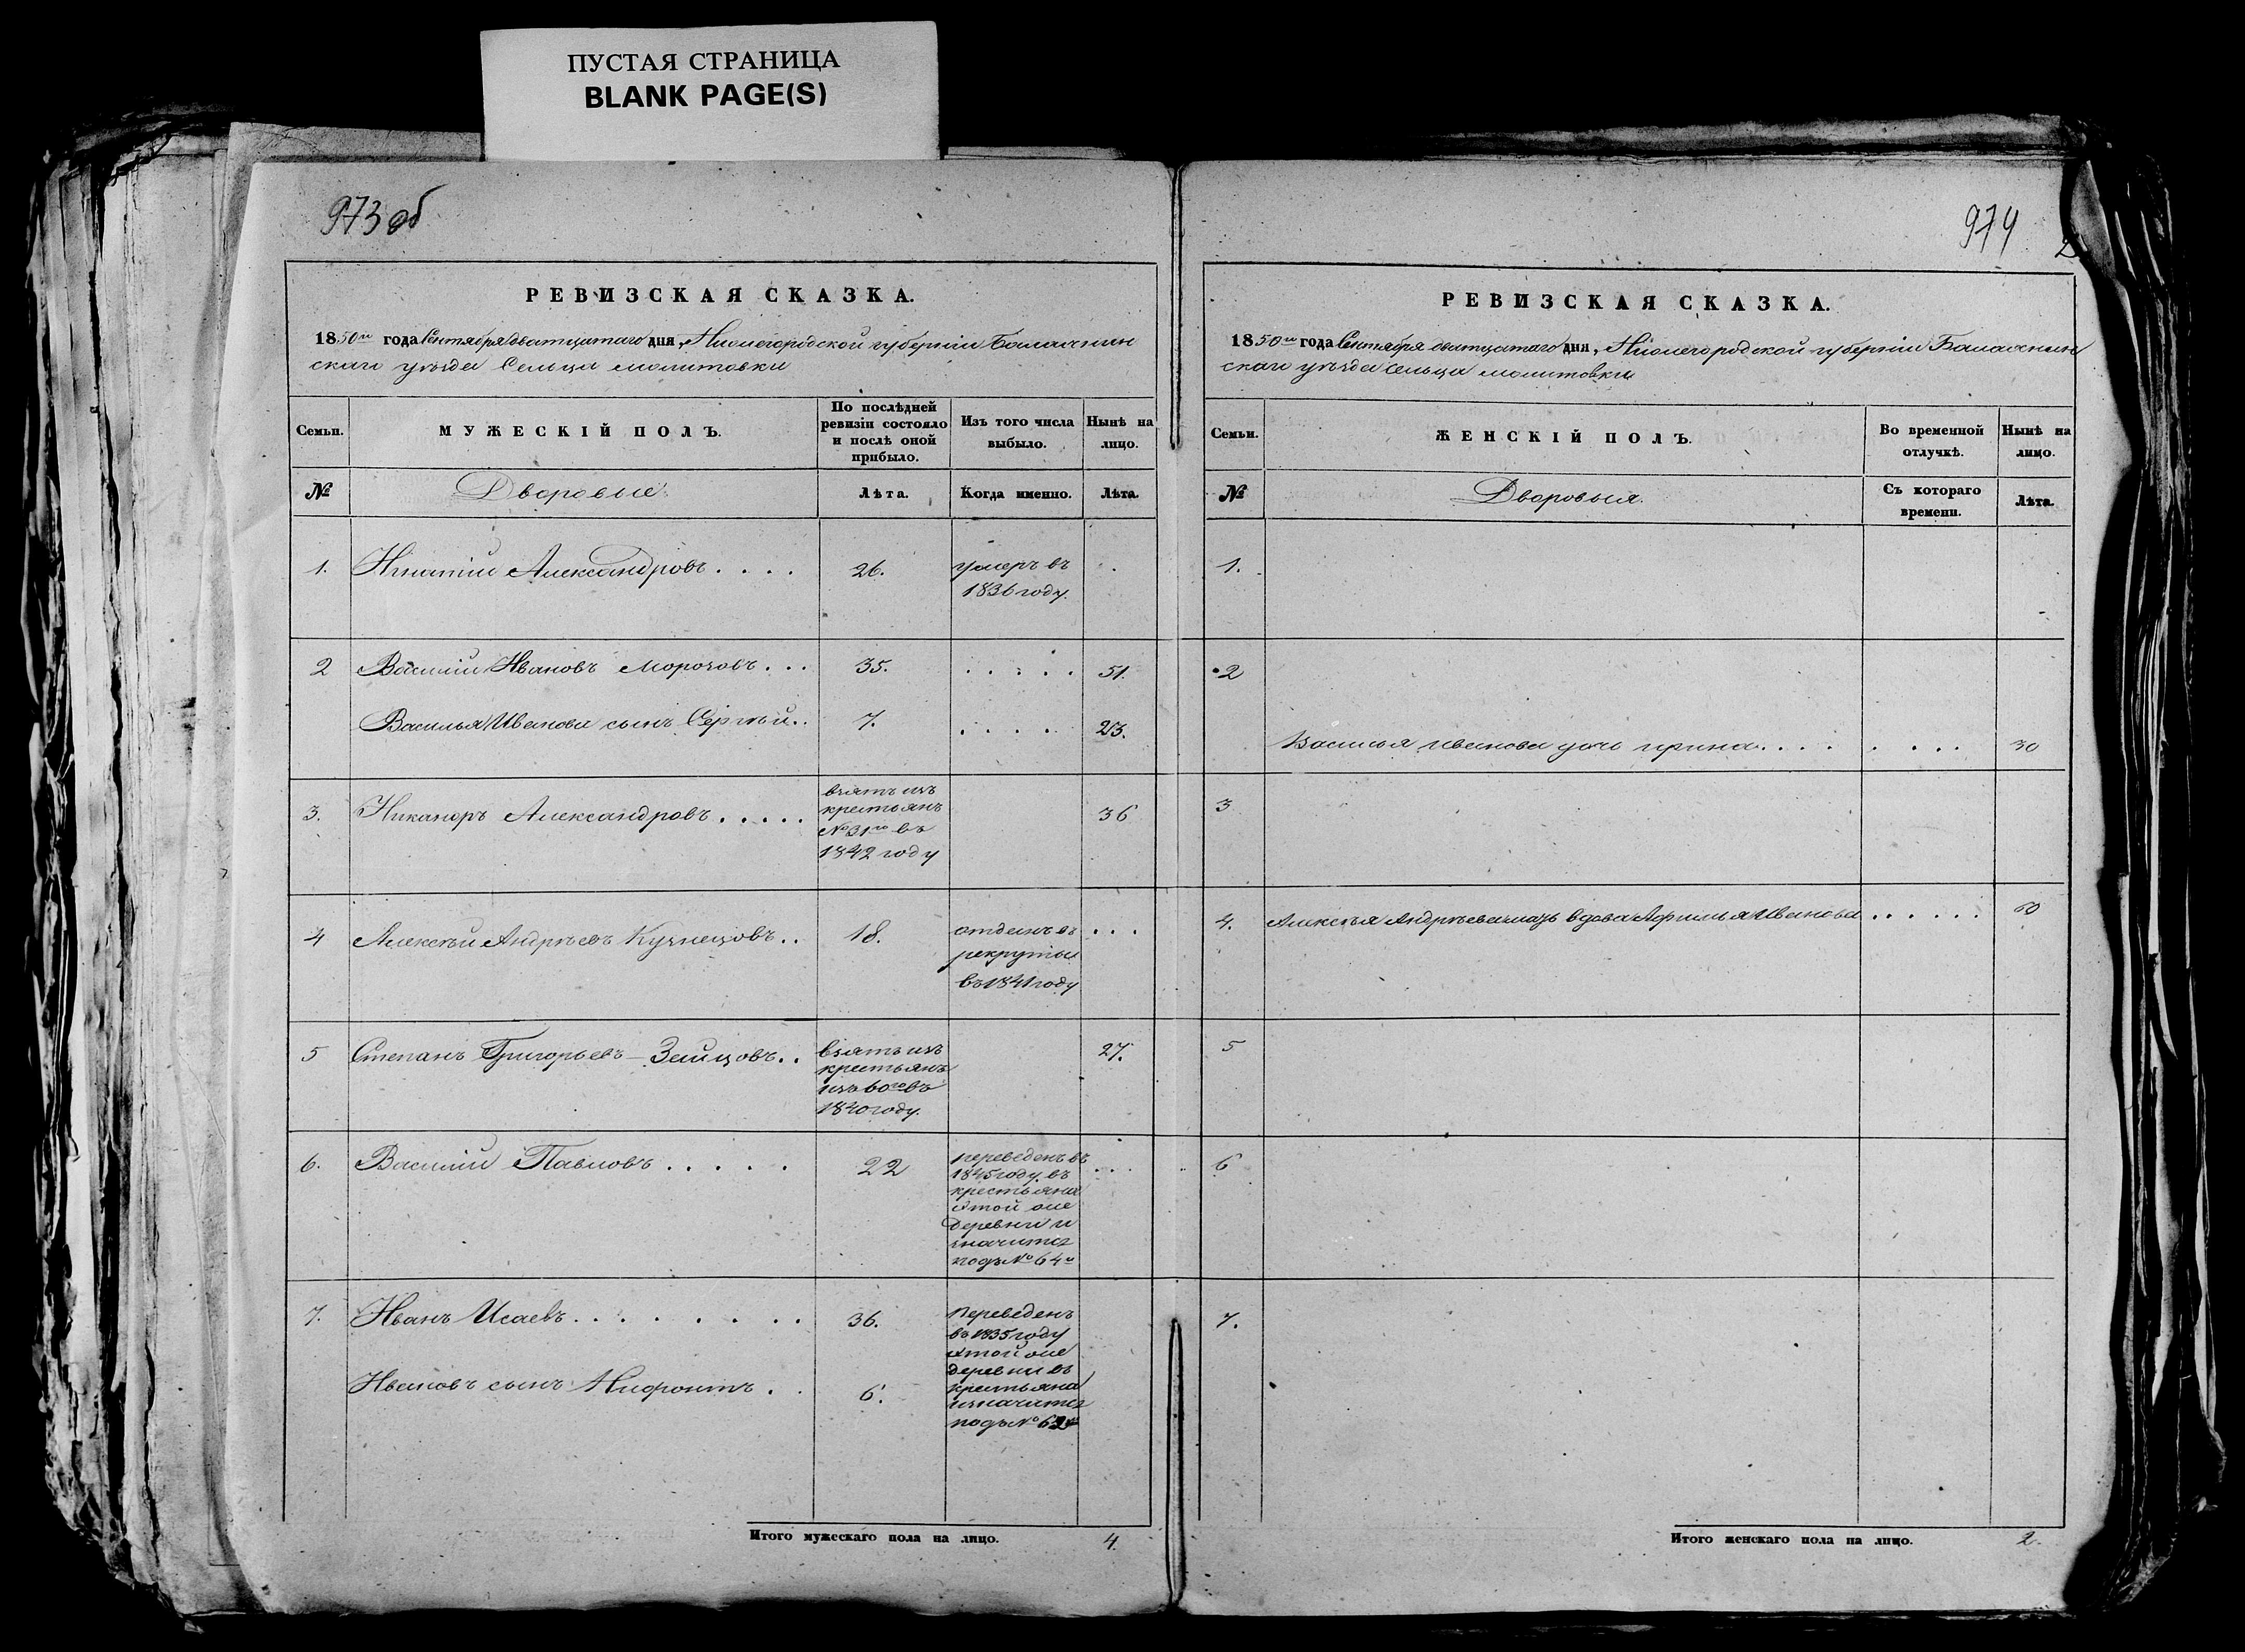 ПУСТАЯ СТРАНИЦА
BLANK PAGE(S)
973 об
РЕВИЗСКАЯ СКАЗКА.
1850го года Сентября дватцатаго дня, Нижегородской губерніи Балахнин
скаго уѣзда Сельца молитовки
Семьи.
МУЖЕСКІЙ ПОЛЪ.
По послѣдней
ревизіи состояло
и послѣ оной
прибыло.
Изъ того числа
выбыло.
Нынѣ на
лицо.
№
Дворовые
Лѣта.
Когда именно.
Лѣта.
1. Александровъ . . . . 26. умеръ въ
1836 году.
2 Василій Ивановъ Морозовъ . . . 35. . . . . . 51.
Василья Иванова сынъ Сергѣй . . 7. . . . . 23.
3. Никаноръ Александровъ . . . . . взятъ изъ
крестьянъ
№ 31го въ
1842 году
36
4 Алексѣй Андрѣевъ Кузнецовъ . . 18. отданъ въ
рекруты
въ 1841 году
. . .
5 Степанъ Григорьевъ Зайцовъ . . взятъ изъ
крестьянъ
изъ 60го въ
1840 году.
27.
6. Василій Павловъ . . . . . 22 переведенъ въ
1845 году въ
крестьяна
этой же
деревни и
значитца
подъ № 64м
. . .
7. Иванъ Исаевъ . . . . . . . . 36. Переведенъ
въ 1835 году
этой же
деревни въ
крестьяна
изначитца
подъ №
Ивановъ сынъ Нифонтъ . . 6.
Итого мужескаго пола на лицо. 4.
974
2
РЕВИЗСКАЯ СКАЗКА.
1850го года Сентября дватцатаго дня, Нижегородской губерніи Балахнин
скаго уѣзда сельца молитовки
Семьи.
ЖЕНСКІЙ ПОЛЪ.
Во временной
отлучкѣ.
Нынѣ на
лицо.
№
Дворовыя.
Съ котораго
времени.
Лѣта.
1.
2
Василья иванова дочь ирина . . . . . . . . 30
3
4. Алексѣя Андрѣева мать вдова Афимья Иванова . . . . . . 60
5
6
7.
Итого женскаго пола на лицо. 2.